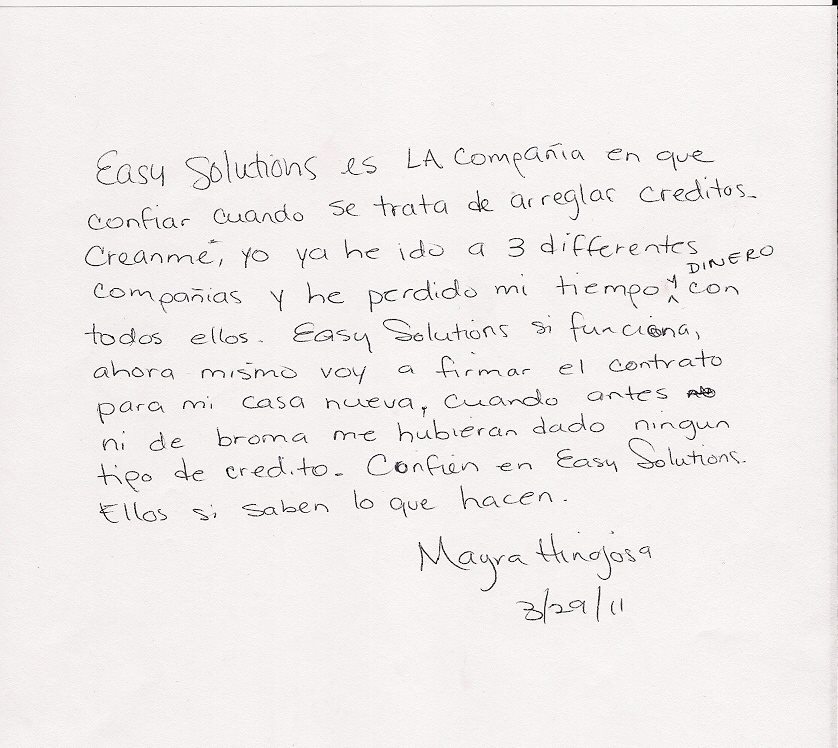 Easy Solutions es LA compañia en que
confiar cuando se trata de arreglar creditos.
Creanme, yo ya he ido a 3 differentes
compañias y he perdido mi tiempo y DINERO con
todos ellos. Easy Solutions si funciona,
ahora mismo voy a firmar el contrato
para mi casa nueva, cuando antes
ni de broma me hubieran dado ningun
tipo de credito. Confien en Easy Solutions.
Ellos si saben lo que hacen.
Mayra Hinojosa
3/29/11